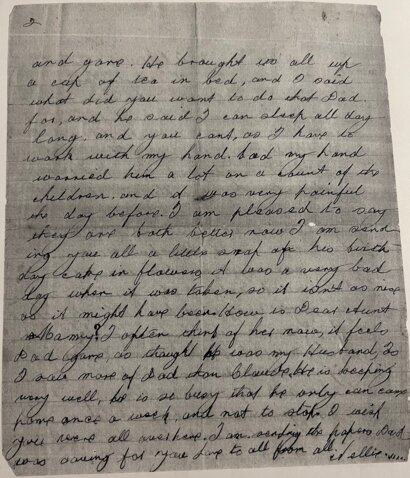 2
and gone. He brought us all up
a cup of tea in bed, and I said
what did you want to do that Dad
for, and he said I can sleep all day
long, and you cant, as I have to
work with my hand. bad my hand
worried him a lot on account of the
children. and it was very painful
the day before. I am pleased to say
they are both better now I am send
ing you all a little snap of his birth
day cake in flowers it was a very bad
day when it was taken, so it isnt as nice
as it might have been. How is Dear Aunt
Mamy? I often think of her now, it feels
Dad gone, as though it was my Husband, as
I saw more of Dad than Claude. He is keeping
very well, he is so busy that he only can come
home once a week, and not to stop. I wish
you were all over here. I am sending the papers Dad
was saving for you Love to all from all. Nellie